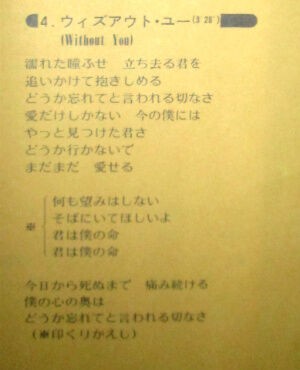 4．ウィズアウト・ユー(3'28")
(Without You)
濡れた瞳ふせ　立ち去る君を
追いかけて抱きしめる
どうか忘れてと言われる切なさ
愛だけしかない　今の僕には
やっと見つけた君さ
どうか行かないで
まだまだ　愛せる
何も望みはしない
そばにいてほしいよ
※
君は僕の命
君は僕の命
今日から死ぬまで　痛み続ける
僕の心の奥は
どうか忘れてと言われる切なさ
(※印くりかえし)